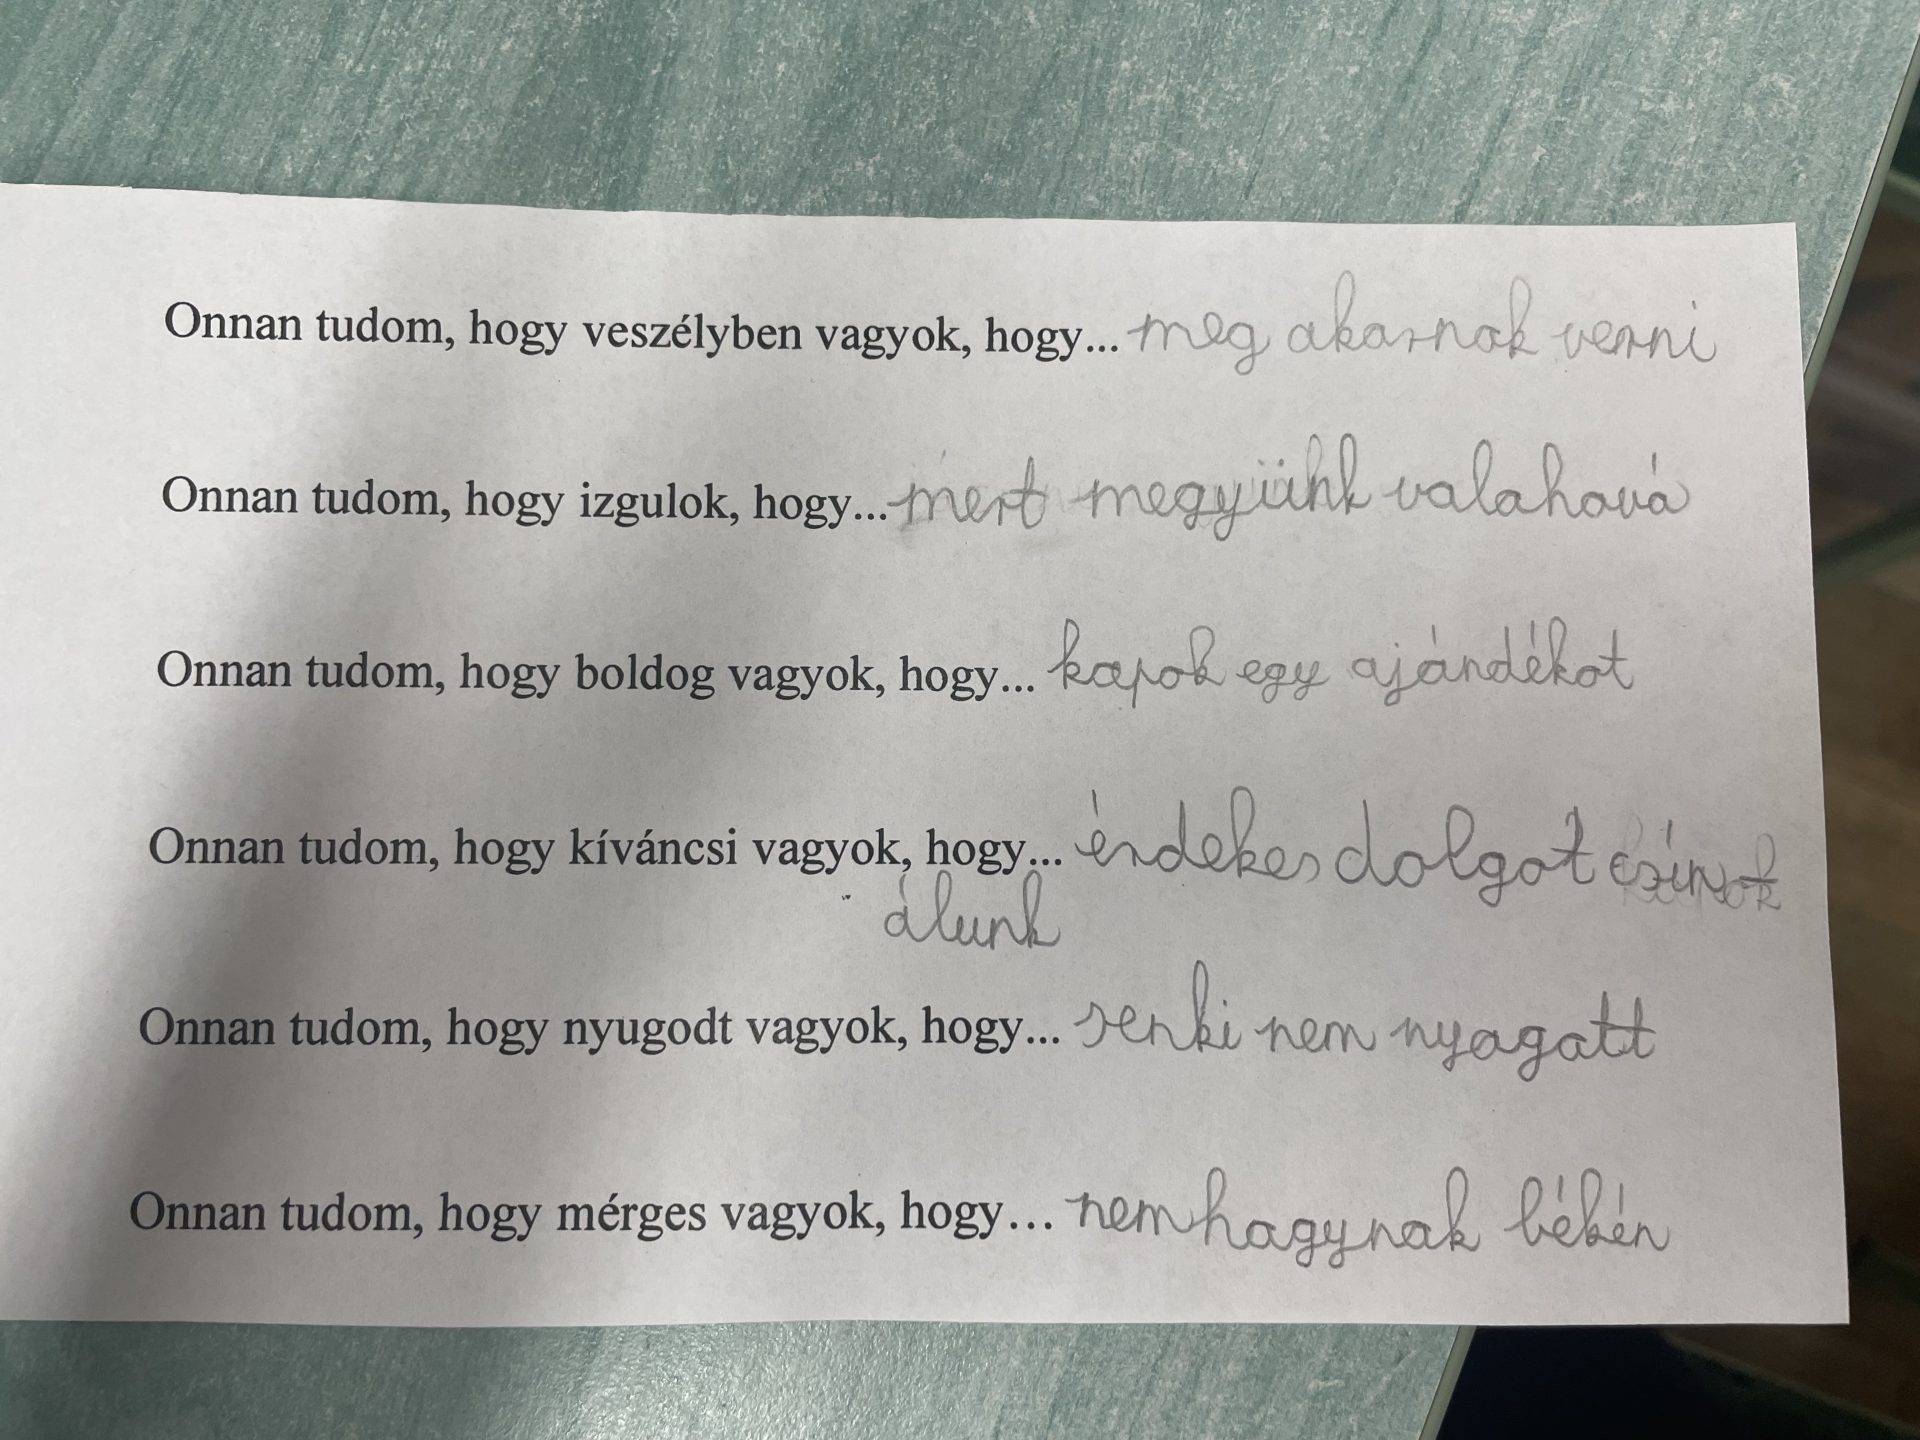 Onnan tudom, hogy veszélyben vagyok, hogy... meg akarnak verni
Onnan tudom, hogy izgulok, hogy... mert megyünk valahová
Onnan tudom, hogy boldog vagyok, hogy... kapok egy ajándékot
Onnan tudom, hogy kíváncsi vagyok, hogy... érdekes dolgot
álunk
Onnan tudom, hogy nyugodt vagyok, hogy... senki nem nyagatt
Onnan tudom, hogy mérges vagyok, hogy... nem hagynak békén